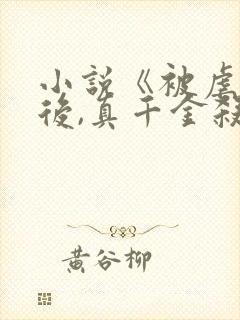 小說《被虐
後,真千金殺
黃谷柳